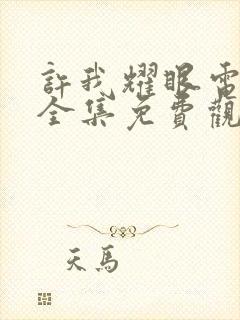 許我耀眼電
全集免費觀
天馬